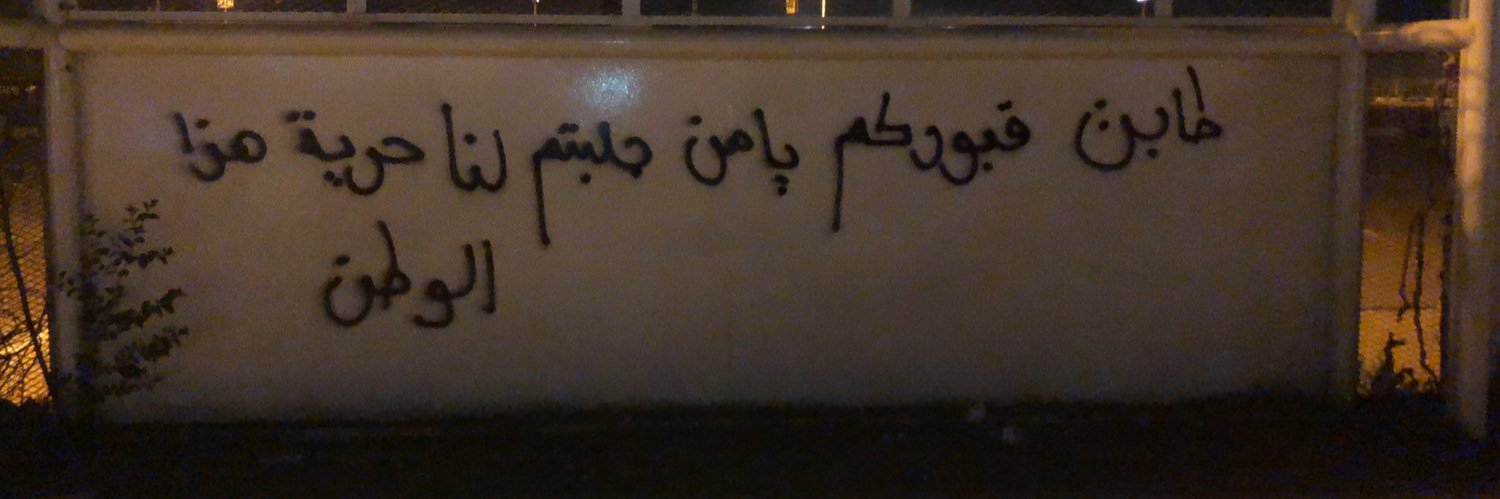 طابت قبوركم يامن جلبتم لنا حرية هذا
الوطن